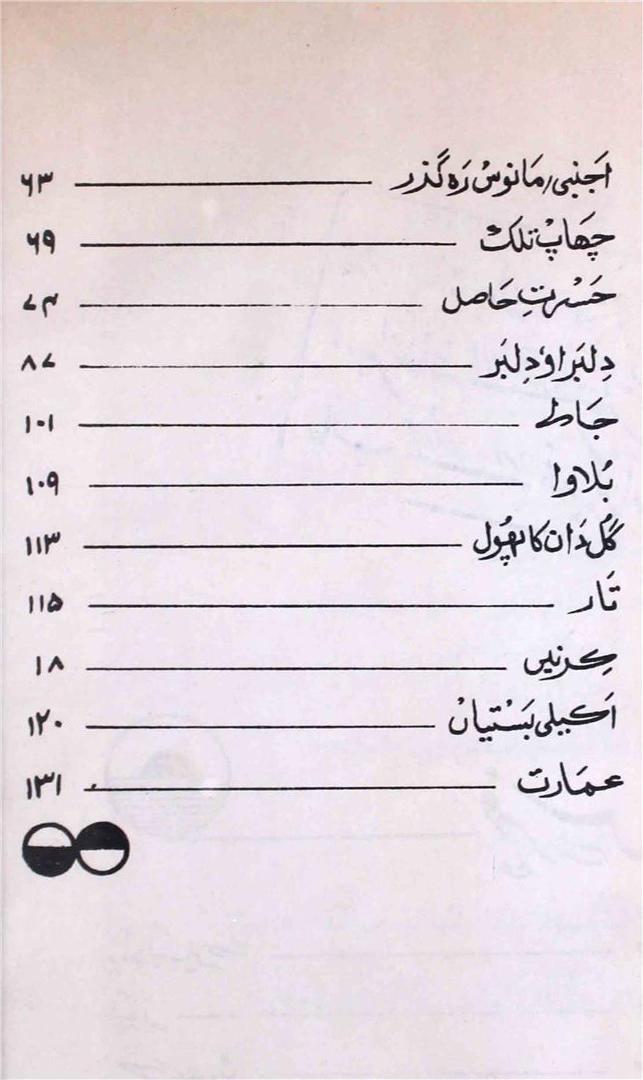 اَجنبی، مَانوسُ رَہ گُذر ۶۳
چھَاپْ تلک ۶۹
حَسْرتِ حَاصل ۷۴
دِلبَر اوٗ دِلبَر ۸۷
جَالے ۱۰۱
بُلاوا ۱۰۹
گُل دَان کا پھُول ۱۱۳
تَار ۱۱۵
کِرنیں ۱۸
اَکیلی بَسْتیاں ۱۲۰
عمَارت ۱۳۱